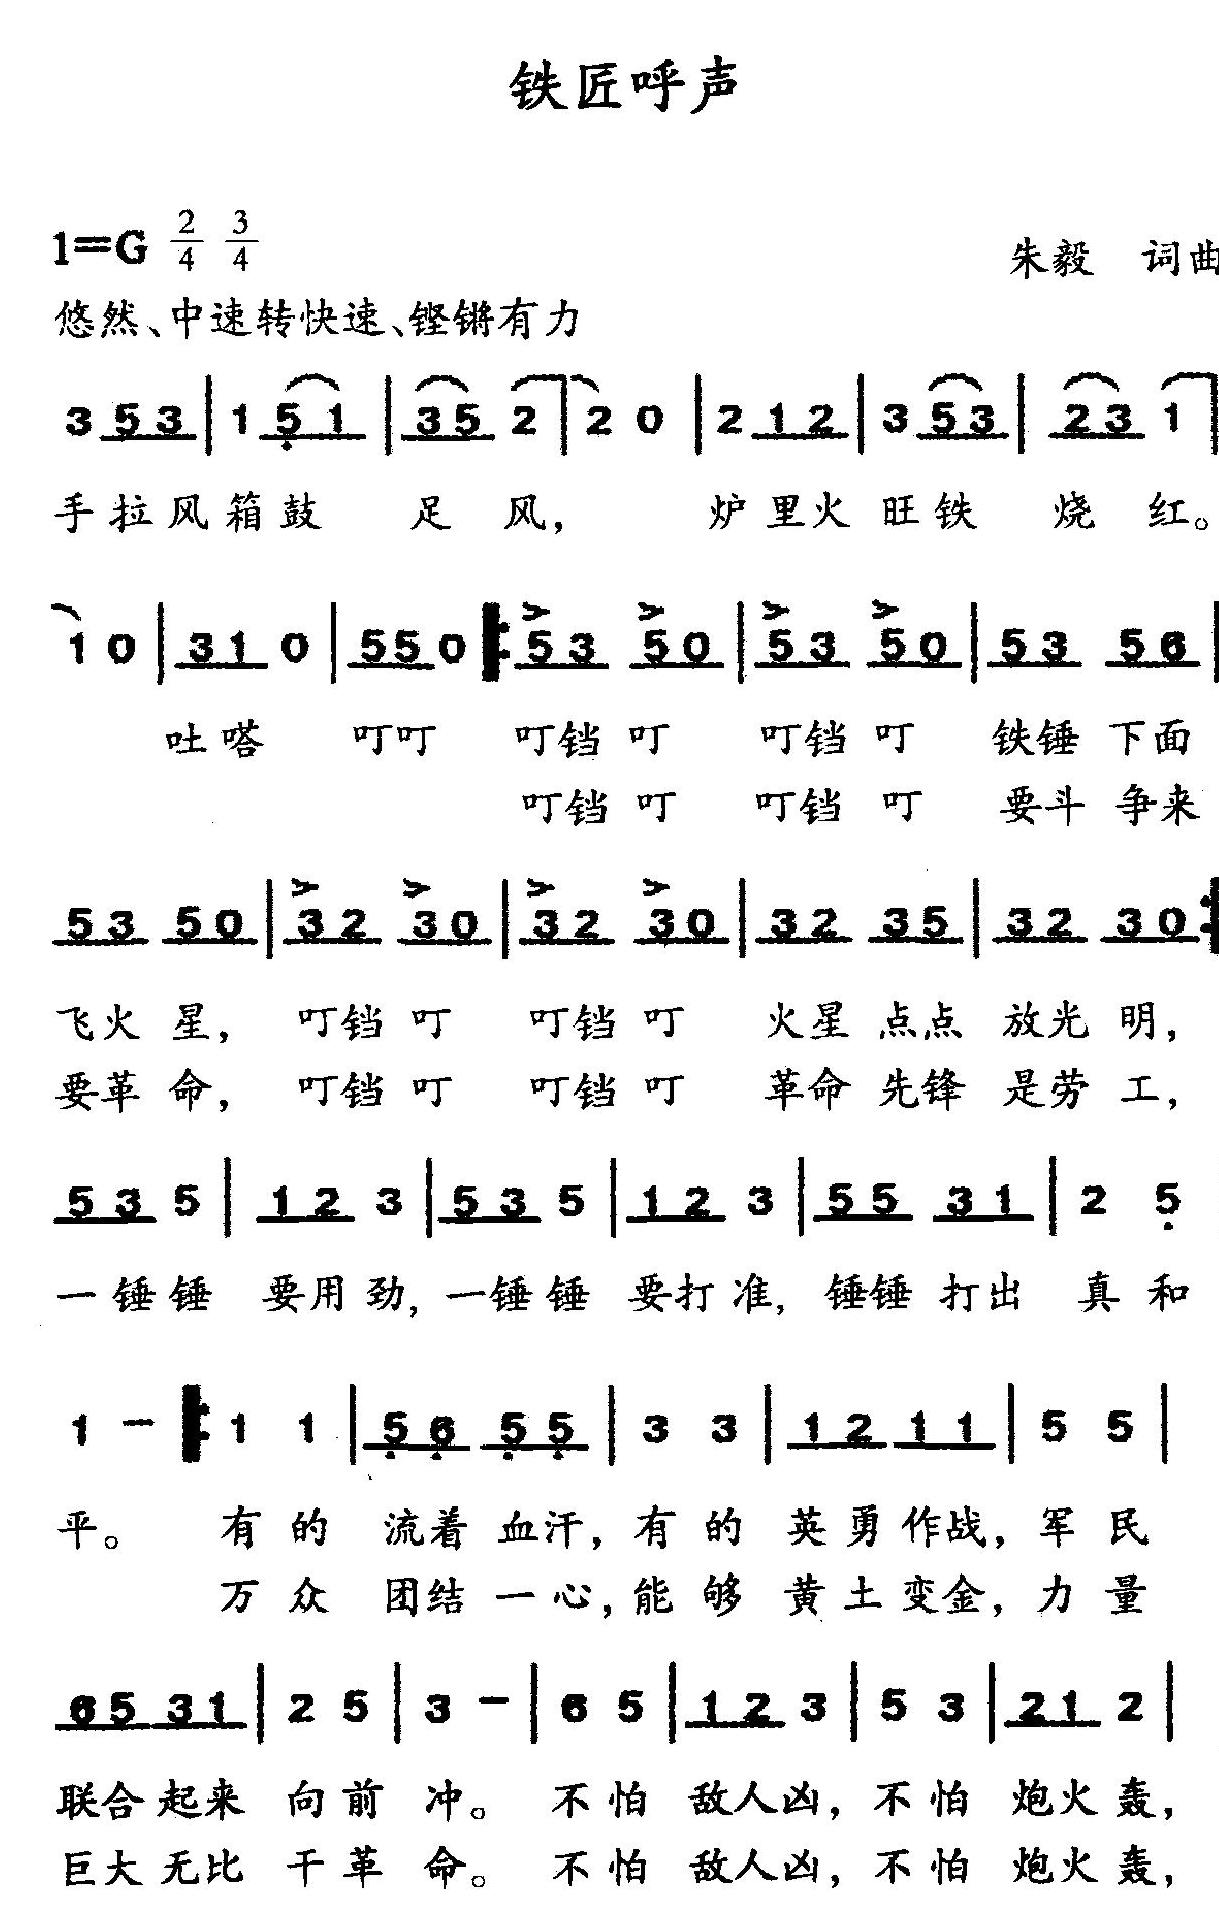 铁匠呼声
1=G 2/4 3/4
朱毅 词曲
悠然、中速转快速、铿锵有力
3 5 3 | 1 5 1 | 3 5 2 | 2 0 | 2 1 2 | 3 5 3 | 2 3 1 |
手拉风箱鼓 足 风, 炉里火旺铁 烧 红。
1 0 | 3 1 0 | 5 5 0 |: 5 3 5 0 | 5 3 5 0 | 5 3 5 6 |
吐嗒 叮叮 叮铛叮 叮铛叮 铁锤下面
叮铛叮 叮铛叮 要斗争来
5 3 5 0 | 3 2 3 0 | 3 2 3 0 | 3 2 3 5 | 3 2 3 0 :|
飞火星, 叮铛叮 叮铛叮 火星点点 放光明,
要革命, 叮铛叮 叮铛叮 革命先锋 是劳工,
5 3 5 | 1 2 3 | 5 3 5 | 1 2 3 | 5 5 3 1 | 2 5
一锤锤 要用劲, 一锤锤 要打准, 锤锤打出 真和
1 - |: 1 1 | 5 6 5 5 | 3 3 | 1 2 1 1 | 5 5 |
平。 有的 流着血汗, 有的 英勇作战, 军民
万众 团结一心, 能够 黄土变金, 力量
6 5 3 1 | 2 5 | 3 - | 6 5 | 1 2 3 | 5 3 | 2 1 2 |
联合起来 向前 冲。 不怕 敌人凶, 不怕 炮火轰,
巨大无比 干革 命。 不怕 敌人凶, 不怕 炮火轰,